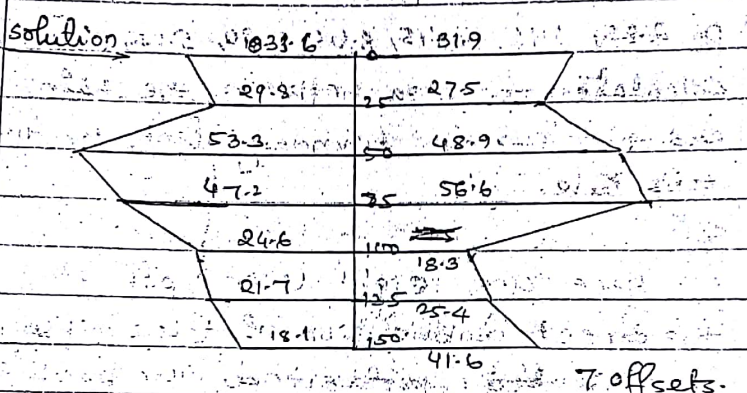 solution 33.6 0 31.9
29.8 25 27.5
53.3 50 48.9
47.2 75 56.6
24.6 100
18.3
21.7 125
25.4
18.1 150
41.6
7 offsets.